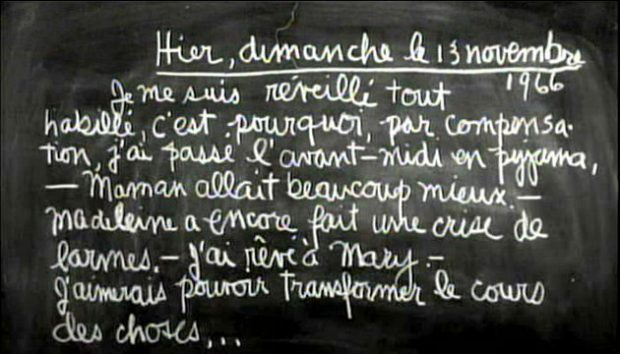 Hier, dimanche le 13 novembre
1966
Je me suis réveillé tout
habillé, c'est pourquoi, par compensa-
tion, j'ai passé l'avant-midi en pyjama,
— Maman allait beaucoup mieux. —
Madeleine a encore fait une crise de
larmes. — J'ai rêvé à Mary. —
J'aimerais pouvoir transformer le cours
des choses...